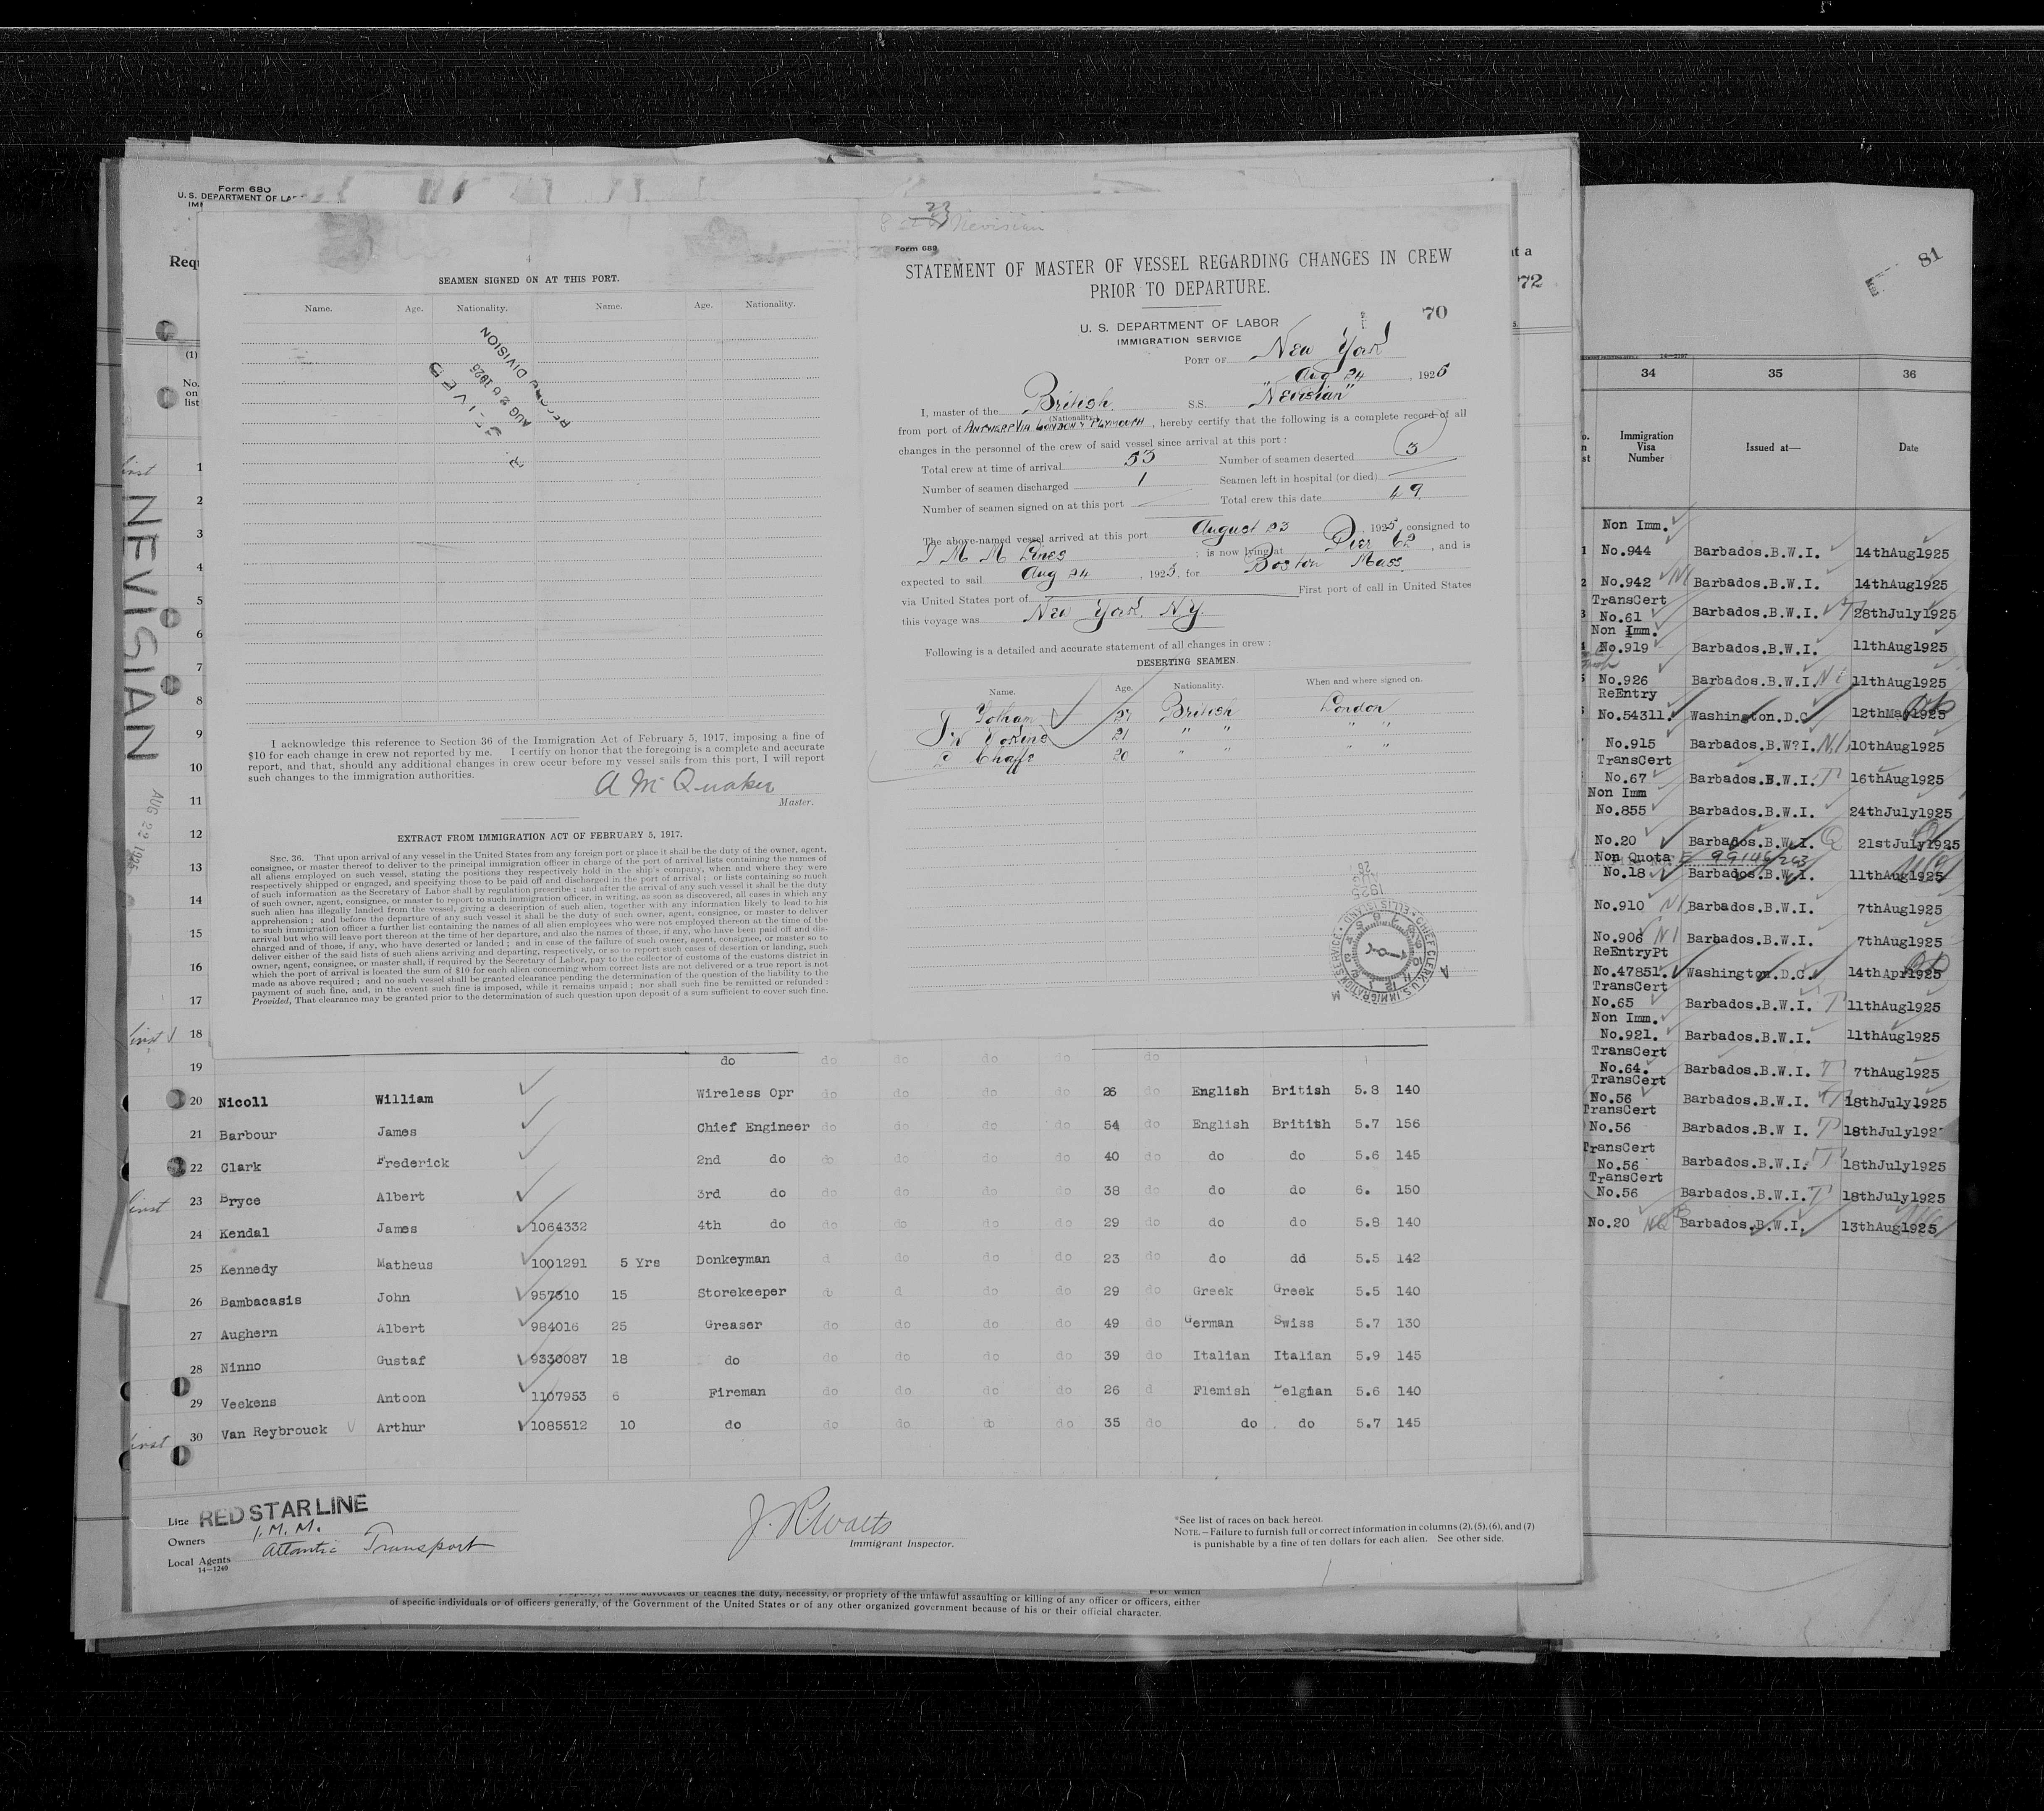 Form 680
U. S. DEPARTMENT OF LA
IMI
Requ
(1)
No.
on
list
NEVISIAN
AUG 22 1925
SEAMEN SIGNED ON AT THIS PORT.
Name. Age. Nationality. Name. Age. Nationality.
AUG 26 1925
DIVISION
I acknowledge this reference to Section 36 of the Immigration Act of February 5, 1917, imposing a fine of
$10 for each change in crew not reported by me. I certify on honor that the foregoing is a complete and accurate
report, and that, should any additional changes in crew occur before my vessel sails from this port, I will report
such changes to the immigration authorities.
A McQuaker
Master.
EXTRACT FROM IMMIGRATION ACT OF FEBRUARY 5, 1917.
SEC. 36. That upon arrival of any vessel in the United States from any foreign port or place it shall be the duty of the owner, agent,
consignee, or master thereof to deliver to the principal immigration officer in charge of the port of arrival lists containing the names of
all aliens employed on such vessel, stating the positions they respectively hold in the ship's company, when and where they were
respectively shipped or engaged, and specifying those to be paid off and discharged in the port of arrival; or lists containing so much
of such information as the Secretary of Labor shall by regulation prescribe; and after the arrival of any such vessel it shall be the duty
of such owner, agent, consignee, or master to report to such immigration officer, in writing, as soon as discovered, all cases in which any
such alien has illegally landed from the vessel, giving a description of such alien, together with any information likely to lead to his
apprehension; and before the departure of any such vessel it shall be the duty of such owner, agent, consignee, or master to deliver
to such immigration officer a further list containing the names of all alien employees who were not employed thereon at the time of the
arrival but who will leave port thereon at the time of her departure, and also the names of those, if any, who have been paid off and dis-
charged and of those, if any, who have deserted or landed; and in case of the failure of such owner, agent, consignee, or master so to
deliver either of the said lists of such aliens arriving and departing, respectively, or so to report such cases of desertion or landing, such
owner, agent, consignee, or master shall, if required by the Secretary of Labor, pay to the collector of customs of the customs district in
which the port of arrival is located the sum of $10 for each alien concerning whom correct lists are not delivered or a true report is not
made as above required; and no such vessel shall be granted clearance pending the determination of the question of the liability to the
payment of such fine, and, in the event such fine is imposed, while it remains unpaid; nor shall such fine be remitted or refunded:
Provided, That clearance may be granted prior to the determination of such question upon deposit of a sum sufficient to cover such fine.
23
Nevisian
Form 689
STATEMENT OF MASTER OF VESSEL REGARDING CHANGES IN CREW
PRIOR TO DEPARTURE.
70
U. S. DEPARTMENT OF LABOR
IMMIGRATION SERVICE
PORT OF New York
Aug 24, 1925
I, master of the British S.S. "Nevisian"
(Nationality.)
from port of ANTWERP VIA LONDON & PLYMOUTH, hereby certify that the following is a complete record of all
changes in the personnel of the crew of said vessel since arrival at this port:
Total crew at time of arrival 53 Number of seamen deserted 3
Number of seamen discharged 1 Seamen left in hospital (or died)
Number of seamen signed on at this port Total crew this date 49
The above-named vessel arrived at this port August 23, 1925, consigned to
I M M Lines; is now lying at Pier 62, and is
expected to sail Aug 24, 1925, for Boston Mass.
via United States port of First port of call in United States
this voyage was New York. N.Y.
Following is a detailed and accurate statement of all changes in crew:
DESERTING SEAMEN.
Name. Age. Nationality. When and where signed on.
27 British London
21 " " " "
20 " " " "
28
AUG
1925
CHIEF CLERK U.S. IMMIGRATION SERVICE • ELLIS ISLAND •
A
M
it a
72
1
2
3
4
5
6
7
8
9
10
11
12
13
14
15
16
17
18
19 do do do do do do
20 Nicoll William Wireless Opr do do do do 26 do English British 5.8 140
21 Barbour James Chief Engineer do do do do 54 do English British 5.7 156
22 Clark Frederick 2nd do do do do do 40 do do do 5.6 145
23 Bryce Albert 3rd do do do do do 38 do do do 6. 150
24 Kendal James 1064332 4th do do do do do 29 do do do 5.8 140
25 Kennedy Matheus 1001291 5 Yrs Donkeyman d do do do 23 do do dd 5.5 142
26 Bambacasis John 957510 15 Storekeeper do d do do 29 do Greek Greek 5.5 140
27 Aughern Albert 984016 25 Greaser do do do do 49 do German Swiss 5.7 130
28 Ninno Gustaf 9330087 18 do do do do do 39 do Italian Italian 5.9 145
29 Veekens Antoon 1107953 6 Fireman do do do do 26 d Flemish Belgian 5.6 140
30 Van Reybrouck Arthur 1085512 10 do do do do do 35 do do do 5.7 145
Line RED STAR LINE
Owners I.M.M.
Local Agents Atlantic Transport
14-1240
J. R. Watts
Immigrant Inspector.
*See list of races on back hereof.
NOTE.—Failure to furnish full or correct information in columns (2), (5), (6), and (7)
is punishable by a fine of ten dollars for each alien. See other side.
who advocates or teaches the duty, necessity, or propriety of the unlawful assaulting or killing of any officer or officers, either
of specific individuals or of officers generally, of the Government of the United States or of any other organized government because of his or their official character.
81
34 35 36
Immigration Visa Number Issued at— Date
Non Imm.
No.944 Barbados.B.W.I. 14thAug1925
No.942 NI Barbados.B.W.I. 14thAug1925
TransCert
No.61 Barbados.B.W.I. T 28thJuly1925
Non Imm.
No.919 Barbados.B.W.I. 11thAug1925
No.926 Barbados.B.W.I. NI 11thAug1925
ReEntry
No.54311. Washington.D.C 12thMay1925
No.915 Barbados.B.W?I. NI 10thAug1925
TransCert
No.67 Barbados.B.W.I. T 16thAug1925
Non Imm
No.855 Barbados.B.W.I. 24thJuly1925
No.20 Barbados.B.W.I. Q 21stJuly1925
Non Quota
No.18 Barbados.B.W.I. 11thAug1925
No.910 NI Barbados.B.W.I. 7thAug1925
No.906 NI Barbados.B.W.I. 7thAug1925
ReEntryPt
No.47851. Washington.D.C. 14thApr1925
TransCert
No.65 Barbados.B.W.I. T 11thAug1925
Non Imm.
No.921. Barbados.B.W.I. 11thAug1925
TransCert
No.64. Barbados.B.W.I. T 7thAug1925
TransCert
No.56 Barbados.B.W.I. T 18thJuly1925
TransCert
No.56 Barbados.B.W I. T 18thJuly192
TransCert
No.56 Barbados.B.W.I. T 18thJuly1925
TransCert
No.56 Barbados.B.W.I. T 18thJuly1925
No.20 Barbados.B.W.I. 13thAug1925